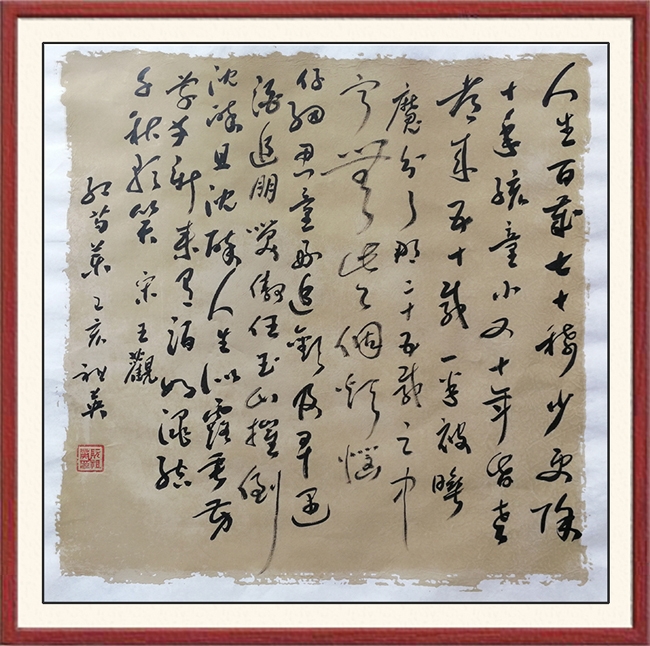 人生百歲七十稀少更除
十年孩童小又十年昏老
都来五十載一半被睡
魔分了那二十五載之中
宁無些個煩惱
仔細思量好追歡及早遇
酒追朋笑傲任玉山摧倒
沈醉且沈醉人生似露垂芳
草幸新来有酒如澠結
千秋歌笑 宋王觀
紅芍藥 亥 英